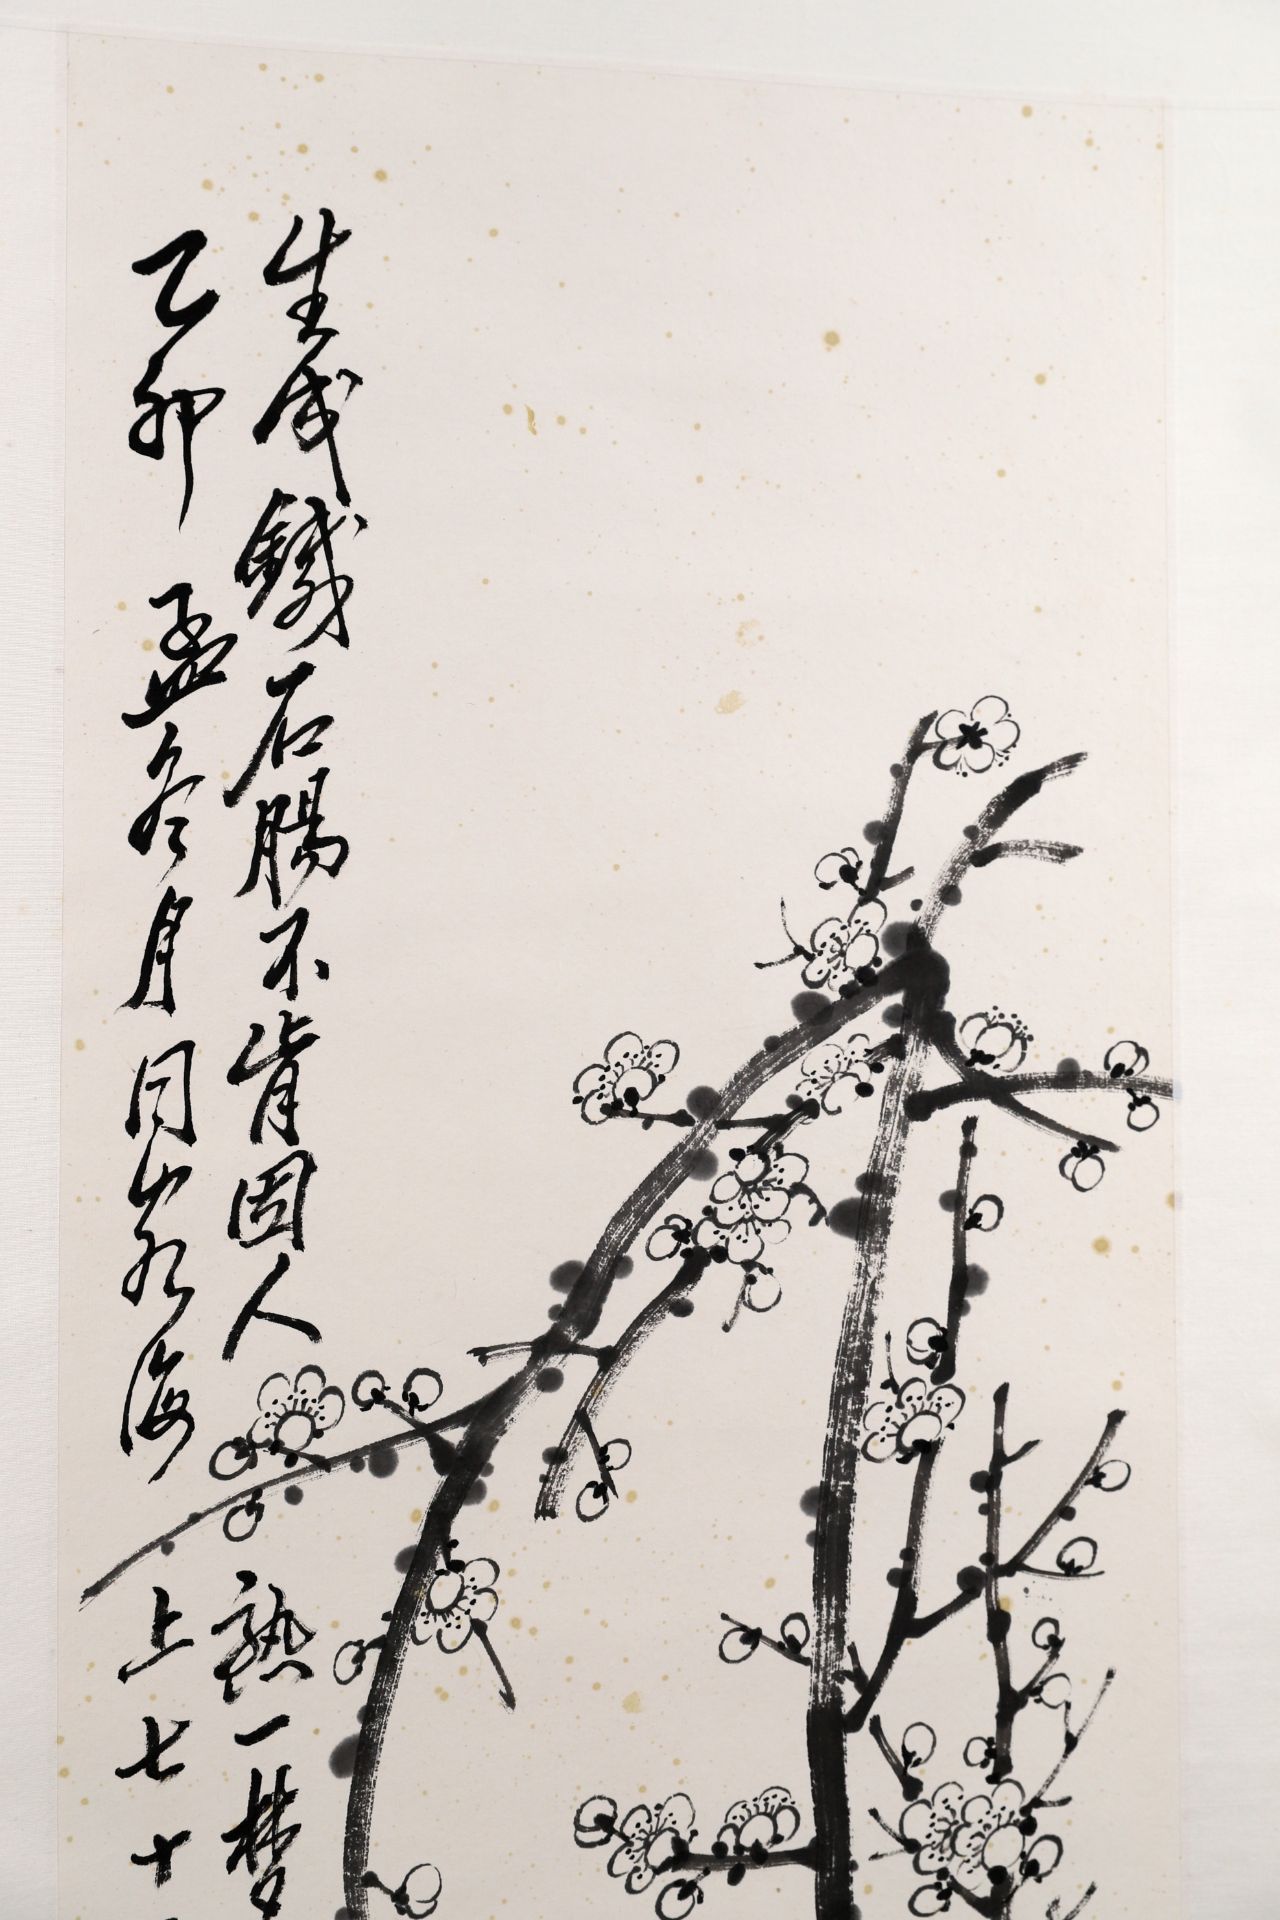 生成鐵石腸不肯因人熱一夢
乙卯孟冬月同客海上七十